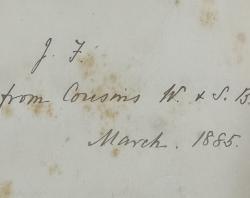 J. F.
from Cousins W. & S. B
March. 1885.